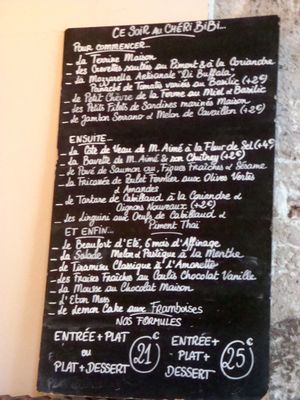 CE SOIR AU CHÉRI BIBI...
POUR COMMENCER...
- La Terrine Maison
- des Crevettes sautées au Piment & à la Coriandre
- La Mozzarella Artisanale "Di Buffala"
Panaché de Tomates variées au Basilic (+2€)
- Le Petit Chèvre de la Ferme au Miel & Basilic
- des Petits Filets de Sardines marinés Maison
- Le Jambon Serrano & Melon de Cavaillon (+2€)
ENSUITE...
- La Côte de Veau de M. Aimé à la Fleur de Sel (+4€)
- La Bavette de M. Aimé & son Chutney (+2€)
- Le Pavé de Saumon au Figues Fraîches & Sésame
- La Fricassée de Poulet Fermier aux Olives Vertes
& Amandes
- Le Tartare de Cabillaud à la Coriandre &
Oignons Nouveaux (+2€)
- Les Linguini aux Oeufs de Cabillaud &
Piment Thaï
ET ENFIN...
- Le Beaufort d'Eté, 6 mois d'Affinage
- La Salade Melon & Pastèque à la Menthe
- Le Tiramisu Classique à l'Amaretto
- des Fraises Fraîches au Coulis Chocolat Vanille
- La Mousse au Chocolat Maison
- L'Eton Mess
- Le Lemon Cake aux Framboises
NOS FORMULES
ENTRÉE + PLAT
ou
PLAT + DESSERT
21€
ENTRÉE +
PLAT +
DESSERT
25€